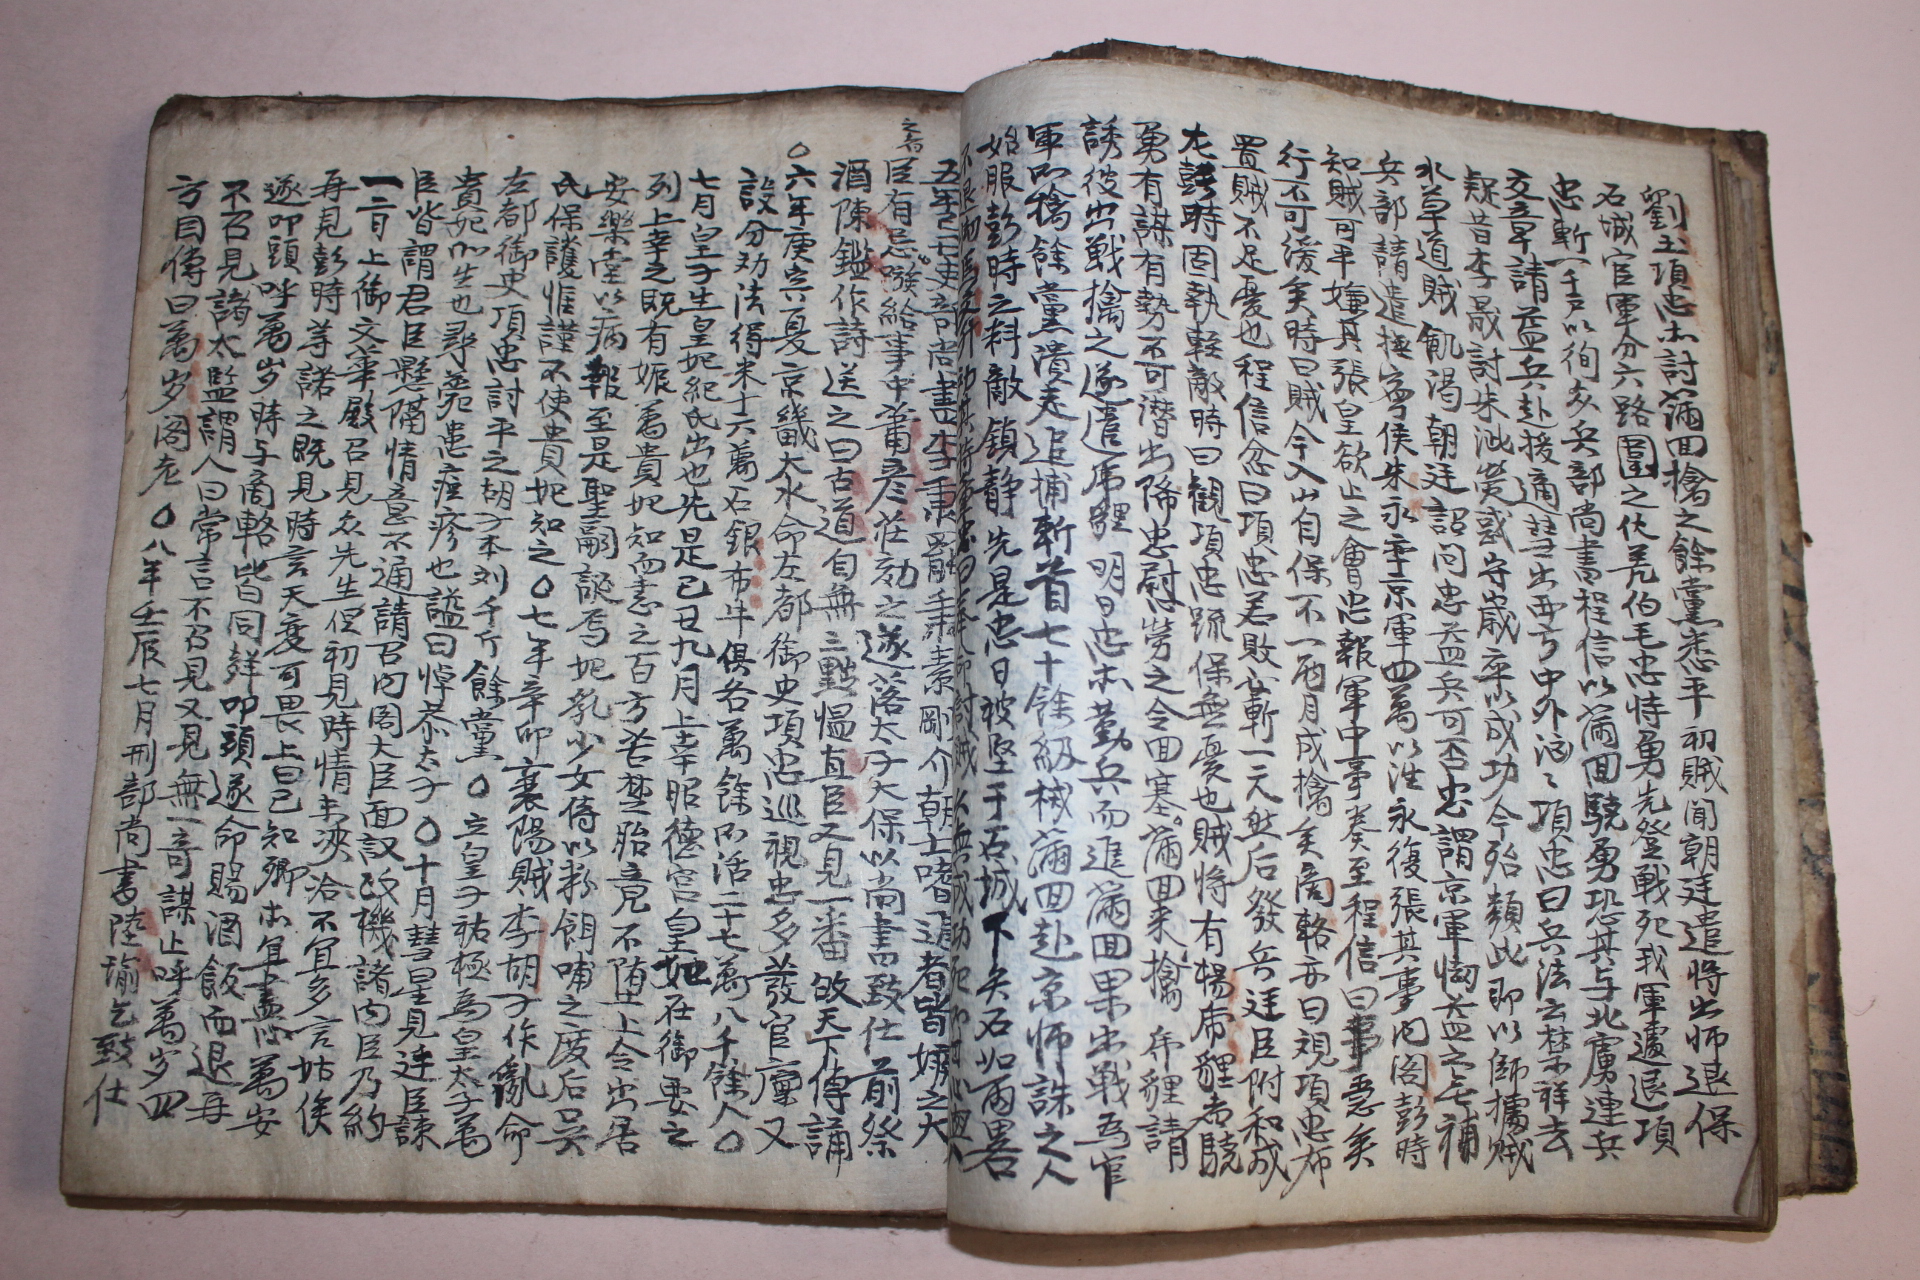 劉玉項忠亦討滿四擒之餘黨悉平初賊聞朝廷遣將出師退保
石城官軍分六路圍之伏羌伯毛忠恃勇先登戰死我軍遽退項
忠斬一千戶以徇众兵部尚書程信以滿四驍勇恐其与北虜連兵
交章請益兵赴援適彗出西方中外洶〻項忠曰兵法云禁祥去
疑昔李晟討朱泚熒惑守歲卒以成功今殆類此即以師據賊
水草道賊飢渴朝廷詔问忠益兵可否忠謂京軍怯益之无補
兵部請遣撫寧侯朱永率京軍四萬以往永復張其事内阁彭時
知賊可平嫌其張皇欲止之會忠報軍中事奏至程信曰事急矣
行不可緩矣時曰賊今入山自保不一兩月成擒矣商輅亦曰視項忠布
置賊不足憂也程信忿曰項忠若敗必斬一元然后發兵廷臣附和咸
尤彭時固執輕敵時曰觀項忠疏保無憂也賊將有楊虎貍者驍
勇有謀有勢不可潛出降忠慰勞之令回塞滿四来擒虎貍請
誘彼出戰擒之遂遣虎貍明日忠亦勤兵而進滿四果出戰為官
軍所擒餘黨潰走追捕斬首七千餘級械滿四赴京師誅之人
始服彭時之料敵鎮静先是忠日被堅于石城下矢石如雨畧
之者
臣有忌嗾給事中蕭彦荘劾之遂落太子太保以尚書致仕前祭
酒陳鑑作詩送之曰古道自無三黜愠直臣又見一番故天下傳誦
○六年庚寅夏京畿大水命左都御史項忠巡視忠多發官廩又
設分劝法得米十六萬石銀布牛俱各萬餘所活二十七萬八千餘人○
七月皇子生皇妃紀氏出也先是己丑九月上幸昭德宮皇妃在御妻之
列上幸之既有娠萬貴妃知而恚之百方苦楚胎竟不堕上令出居
安樂堂以病報至是聖嗣誕焉妃乳少女侍以粉餌哺之废后吴
氏保護惟謹不使貴妃知之○七年辛卯襄陽賊李胡子作亂命
左都御史項忠討平之胡子本刘千斤餘黨○立皇子祐極為皇太子萬
貴妃所生也尋薨患痘疹也諡曰悼恭太子○十月彗星見廷臣諫
臣皆謂君臣懸隔情意不通請召内阁大臣面議政機諸内臣乃約
一二日上御文華殿召見众先生但初見時情未浹洽不宜多言姑俟
再見彭時等諾之既見時言天変可畏上曰已知卿亦宜盡心萬安
遂叩頭呼萬岁時与商輅皆同辞叩頭遂命賜酒飯而退再
不召見諸太監謂人曰常言不召見又見無一奇謀止呼萬岁四
方因傳曰萬岁阁老○八年壬辰七月刑部尚書陸瑜乞致仕